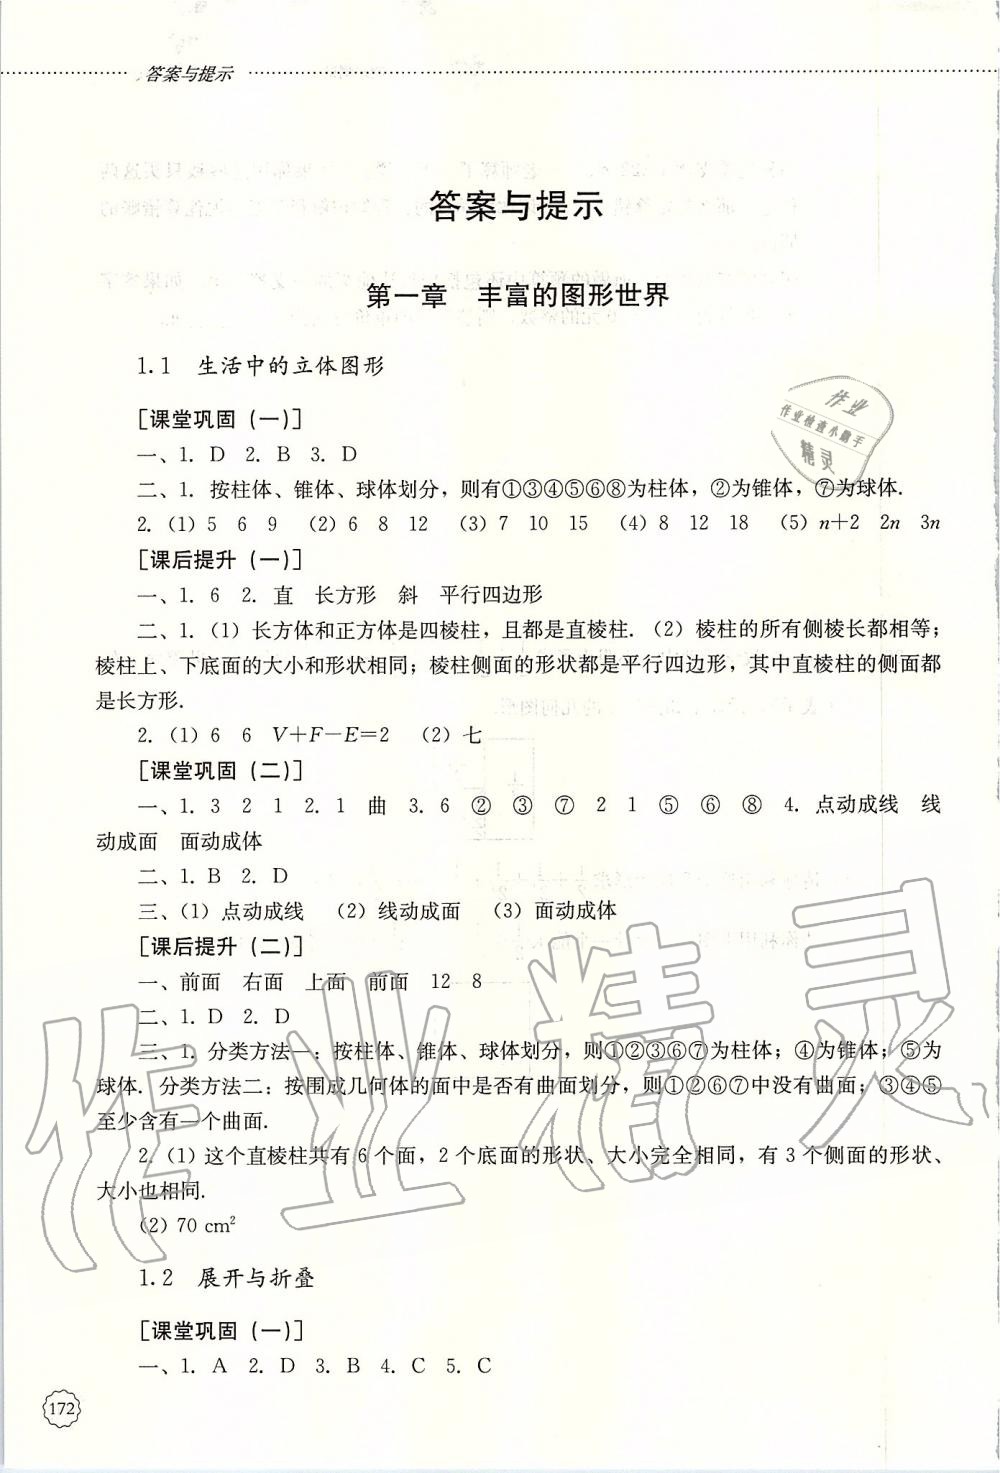 答案与提示
答案与提示
第一章 丰富的图形世界
1.1 生活中的立体图形
[课堂巩固(一)]
一、1. D 2. B 3. D
二、1. 按柱体、锥体、球体划分，则有①③④⑤⑥⑧为柱体，②为锥体，⑦为球体.
2.(1) 5 6 9 (2) 6 8 12 (3) 7 10 15 (4) 8 12 18 (5) n+2 2n 3n
[课后提升(一)]
一、1. 6 2. 直 长方形 斜 平行四边形
二、1.(1) 长方体和正方体是四棱柱，且都是直棱柱.(2) 棱柱的所有侧棱长都相等；
棱柱上、下底面的大小和形状相同；棱柱侧面的形状都是平行四边形，其中直棱柱的侧面都
是长方形.
2.(1) 6 6 V+F−E=2 (2) 七
[课堂巩固(二)]
一、1. 3 2 1 2. 1 曲 3. 6 ② ③ ⑦ 2 1 ⑤ ⑥ ⑧ 4. 点动成线 线
动成面 面动成体
二、1. B 2. D
三、(1) 点动成线 (2) 线动成面 (3) 面动成体
[课后提升(二)]
一、前面 右面 上面 前面 12 8
二、1. D 2. D
三、1. 分类方法一：按柱体、锥体、球体划分，则①②③⑥⑦为柱体；④为锥体；⑤为
球体. 分类方法二：按围成几何体的面中是否有曲面划分，则①②⑥⑦中没有曲面；③④⑤
至少含有一个曲面.
2.(1) 这个直棱柱共有 6 个面，2 个底面的形状、大小完全相同，有 3 个侧面的形状、
大小也相同.
(2) 70 cm²
1.2 展开与折叠
[课堂巩固(一)]
一、1. A 2. D 3. B 4. C 5. C
172
作业
作业检查小帮手
精灵
作业精灵